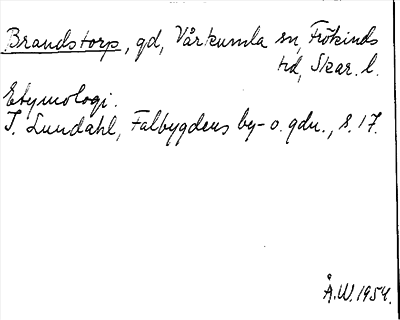 Brandstorp, gd, Vårkumla sn, Frökinds
hd, Skar. l.
Etymologi.
I. Lundahl, Falbygdens by- o. gdn., s. 17.
Å.W. 1954.